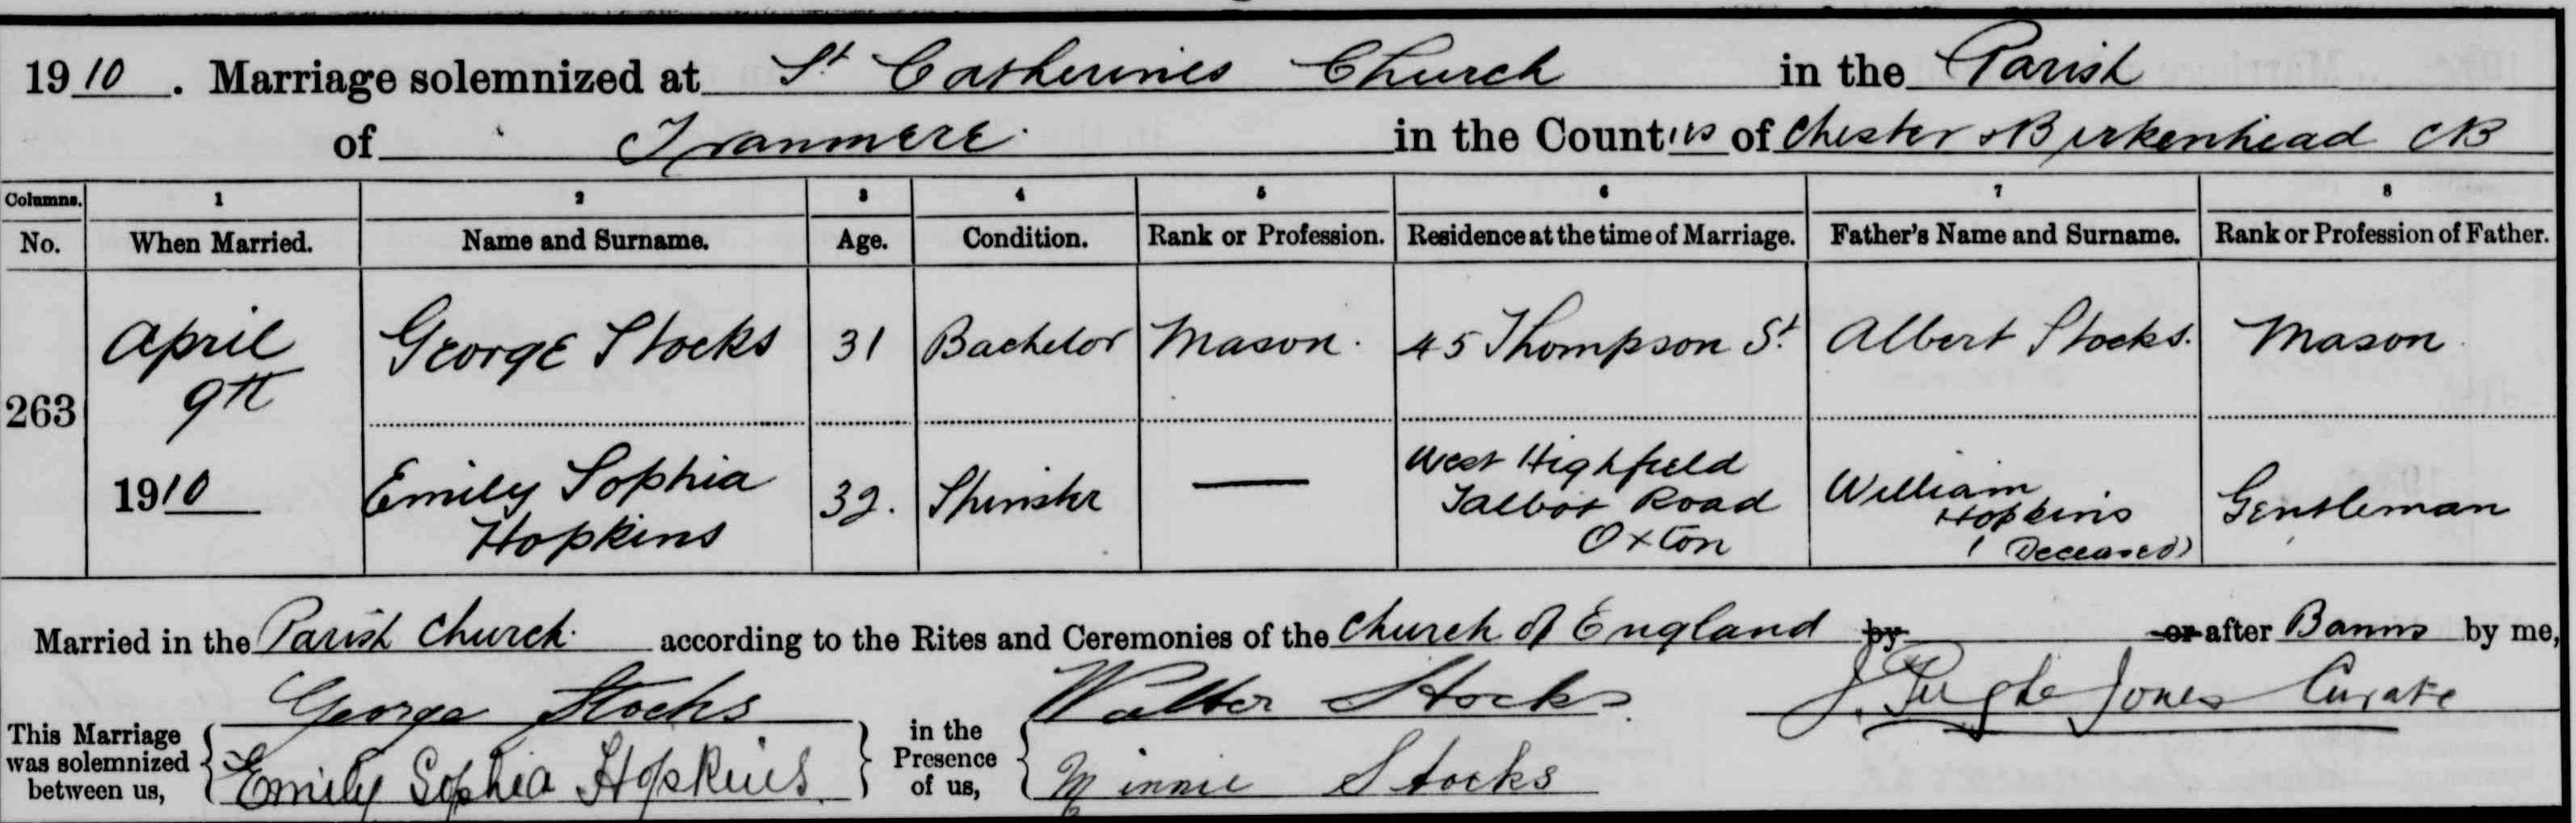 1910. Marriage solemnized at St Catherines Church in the Parish
of Tranmere in the Counties of Chester & Birkenhead CB
Columns. 1 2 3 4 5 6 7 8
No. When Married. Name and Surname. Age. Condition. Rank or Profession. Residence at the time of Marriage. Father's Name and Surname. Rank or Profession of Father.
263
April
9th
1910
George Stocks 31 Bachelor Mason. 45 Thompson St. Albert Stocks. Mason
Emily Sophia
Hopkins
32. Spinster —
West Highfield
Talbot Road
Oxton
William
Hopkins
(Deceased)
Gentleman
Married in the Parish Church. according to the Rites and Ceremonies of the Church of England by or after Banns by me,
J. Pugh Jones Curate
This Marriage
was solemnized
between us,
George Stocks
Emily Sophia Hopkins
in the
Presence
of us,
Walter Stocks
Minnie Stocks